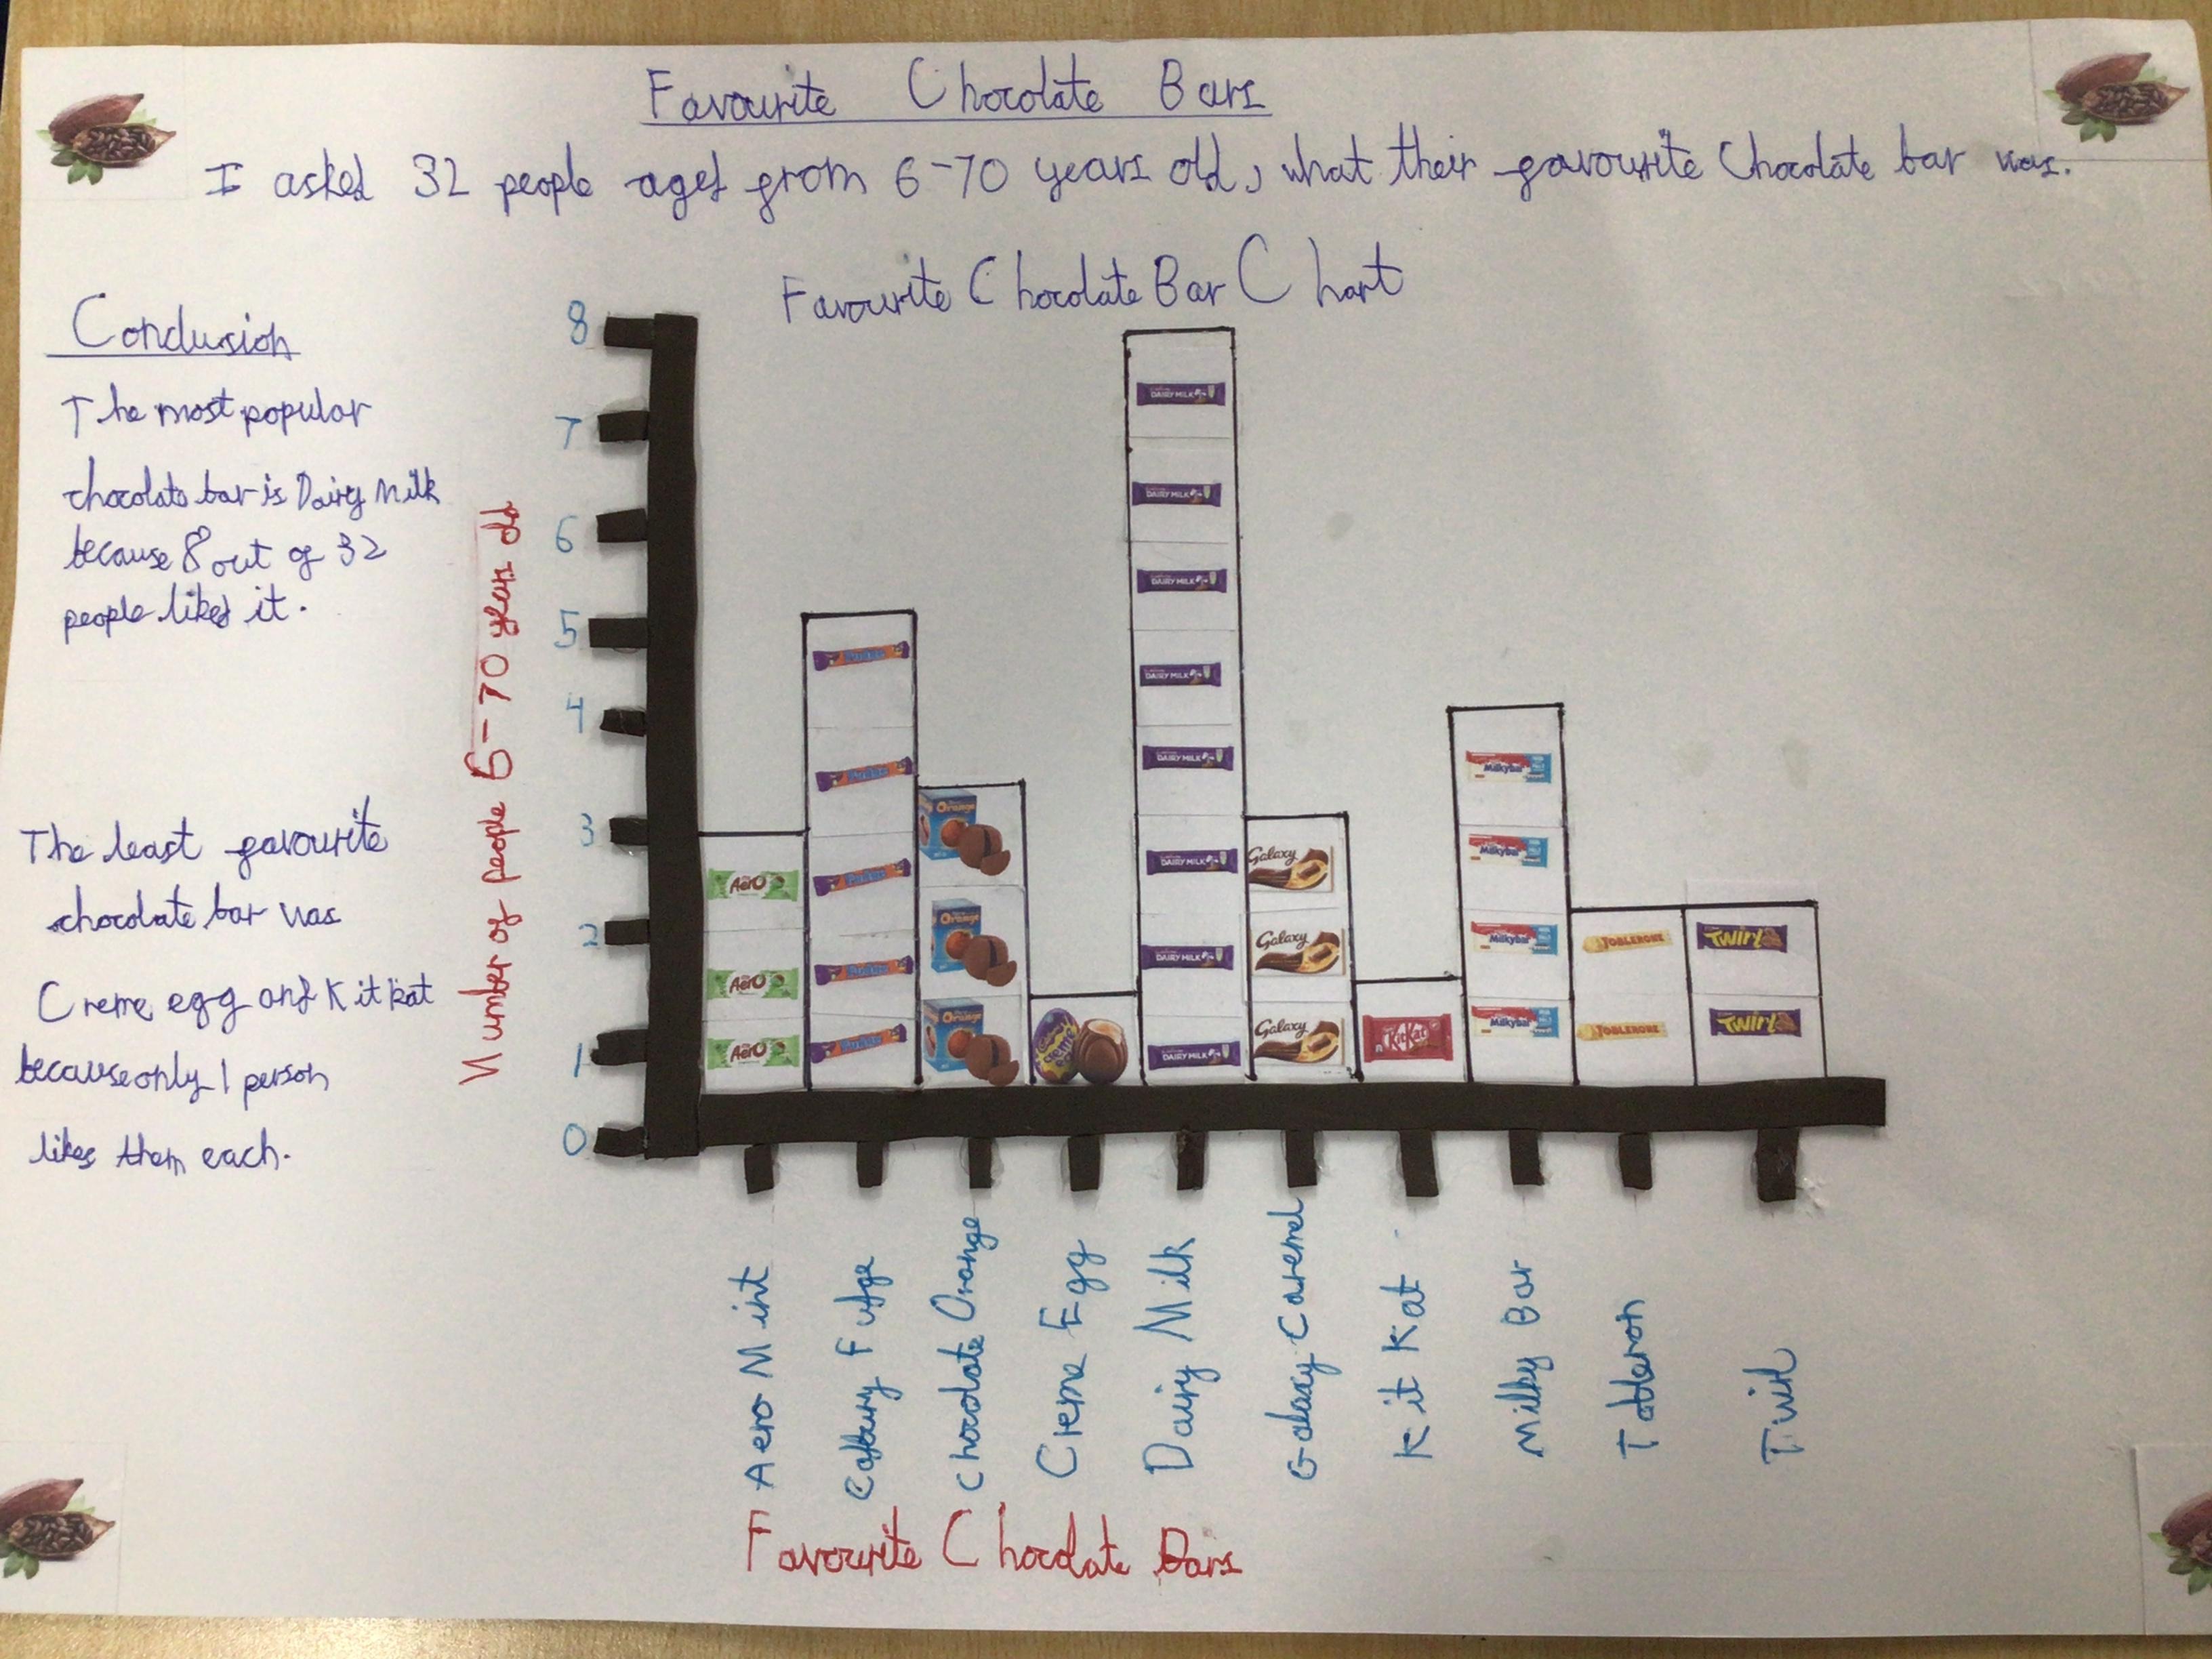 Favourite Chocolate Bars
I asked 32 people aged from 6-70 years old, what their favourite Chocolate bar was.
Favourite Chocolate Bar Chart
Conclusion
The most popular
chocolate bar is Dairy Milk
because 8 out of 32
people liked it.
The least favourite
chocolate bar was
Creme egg and Kitkat
because only 1 person
likes them each.
Number of people 6-70 years old
8
7
6
5
4
3
2
1
0
DAIRY MILK
DAIRY MILK
DAIRY MILK
DAIRY MILK
DAIRY MILK
DAIRY MILK
DAIRY MILK
DAIRY MILK
Fudge
Fudge
Fudge
Fudge
Fudge
Orange
Orange
Orange
Aero
Aero
Aero
Creme
Galaxy
Galaxy
Galaxy
KitKat
Milkybar
Milkybar
Milkybar
Milkybar
TOBLERONE
TOBLERONE
Twirl
Twirl
Aero Mint
Cadbury Fudge
Chocolate Orange
Creme Egg
Dairy Milk
Galaxy Caremel
Kit Kat
Milky Bar
Twirl
Favourite Chocolate Bars